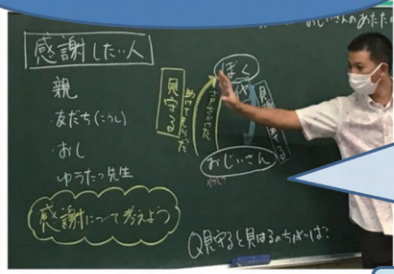 おじいさんのあたたか
感謝したい人
親
・友だち(こうし)
・おし
ゆうたつ先生
感謝について考えよう
見守る
ぼく
おじいさん
Q見守ると見はるのちがいは?